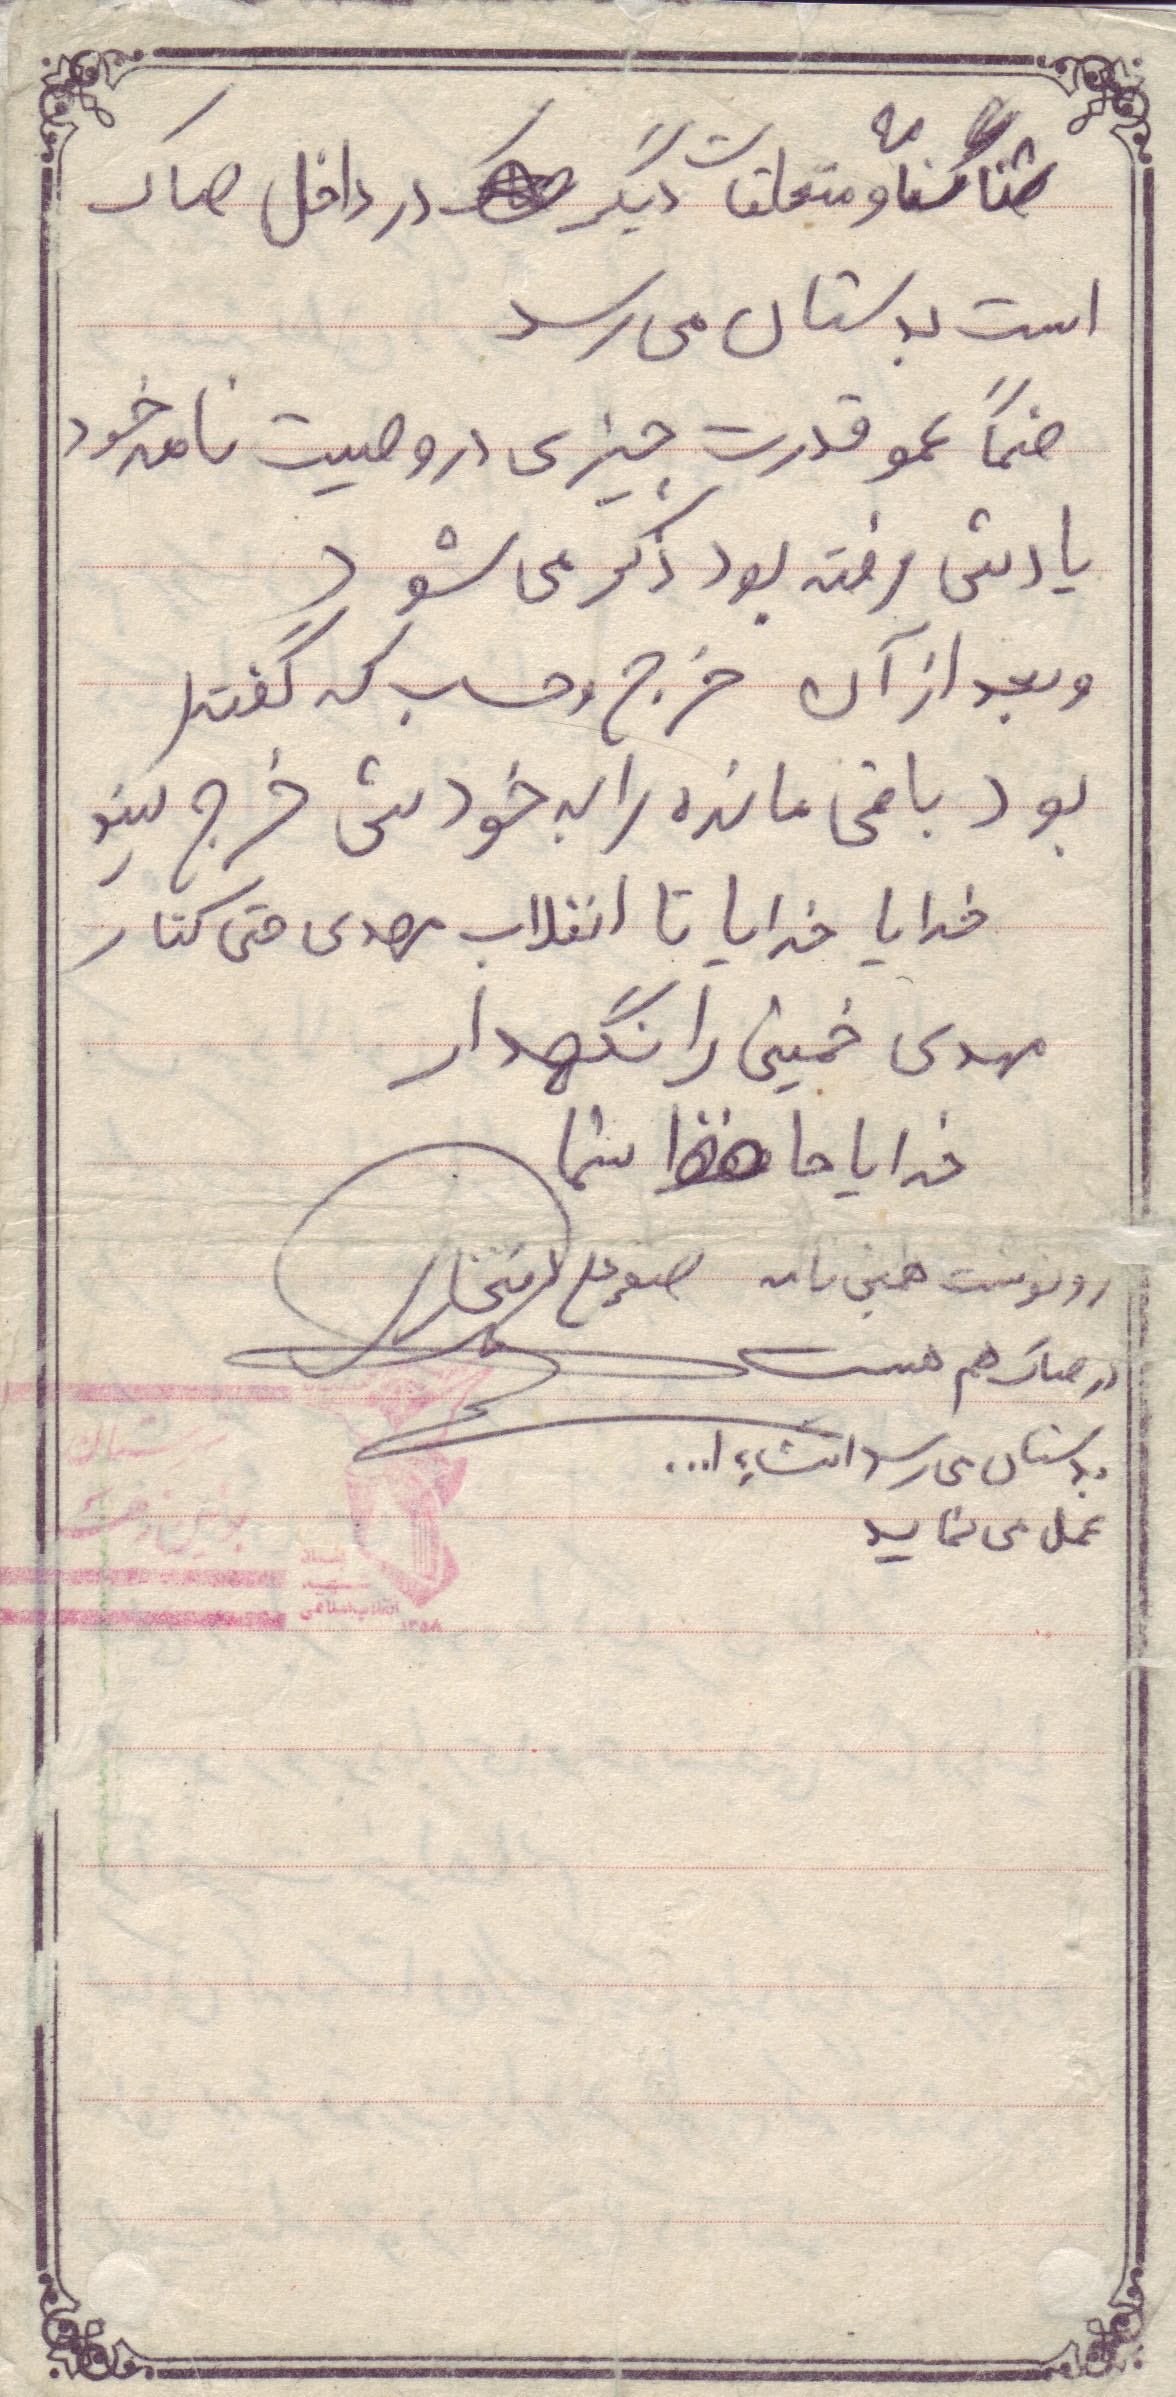 شناسنامه و متعلقات دیگر در داخل ساک
است بدستتان می رسد
ضمناً عمو قدرت چیزی در وصیت نامه خود
یادش رفته بود ذکر می شود
و بعد از آن خرج و حسب که گفته
بود باقی مانده را به خودش خرج کنید
خدایا خدایا تا انقلاب مهدی حتی کنار
مهدی خمینی را نگهدار
خدایا حافظ شما
رونوشت همین نامه صفرعلی افتخاری
در ساک هم هست
بدستتان می رسد انشاءا...
عمل می نمایید
بنیاد
شهید
انقلاب اسلامی
۱۳۵۸